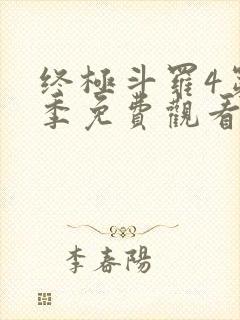 终極斗羅4第
季免費觀看
李春陽